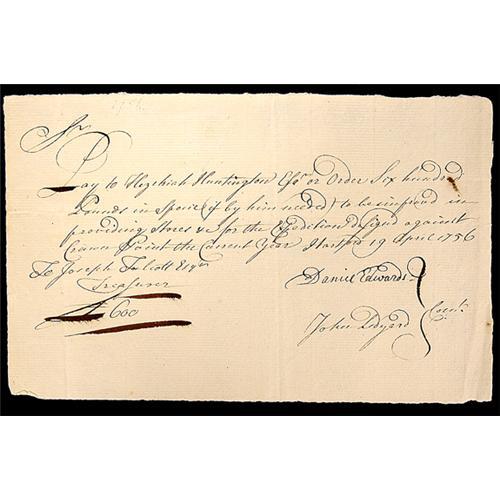 Sr.
Pay to Hezekiah Huntington Esqr or Order Six hundred
Pounds in Specie (if by him needed) to be improvd in
providing Stores &c for the Expedition designd against
Crown Point the Current Year Hartford 19 April 1756
To Joseph Talcott Esqr
Treasurer
Daniel Edwards
£ 600
John Ledyard
Comtt